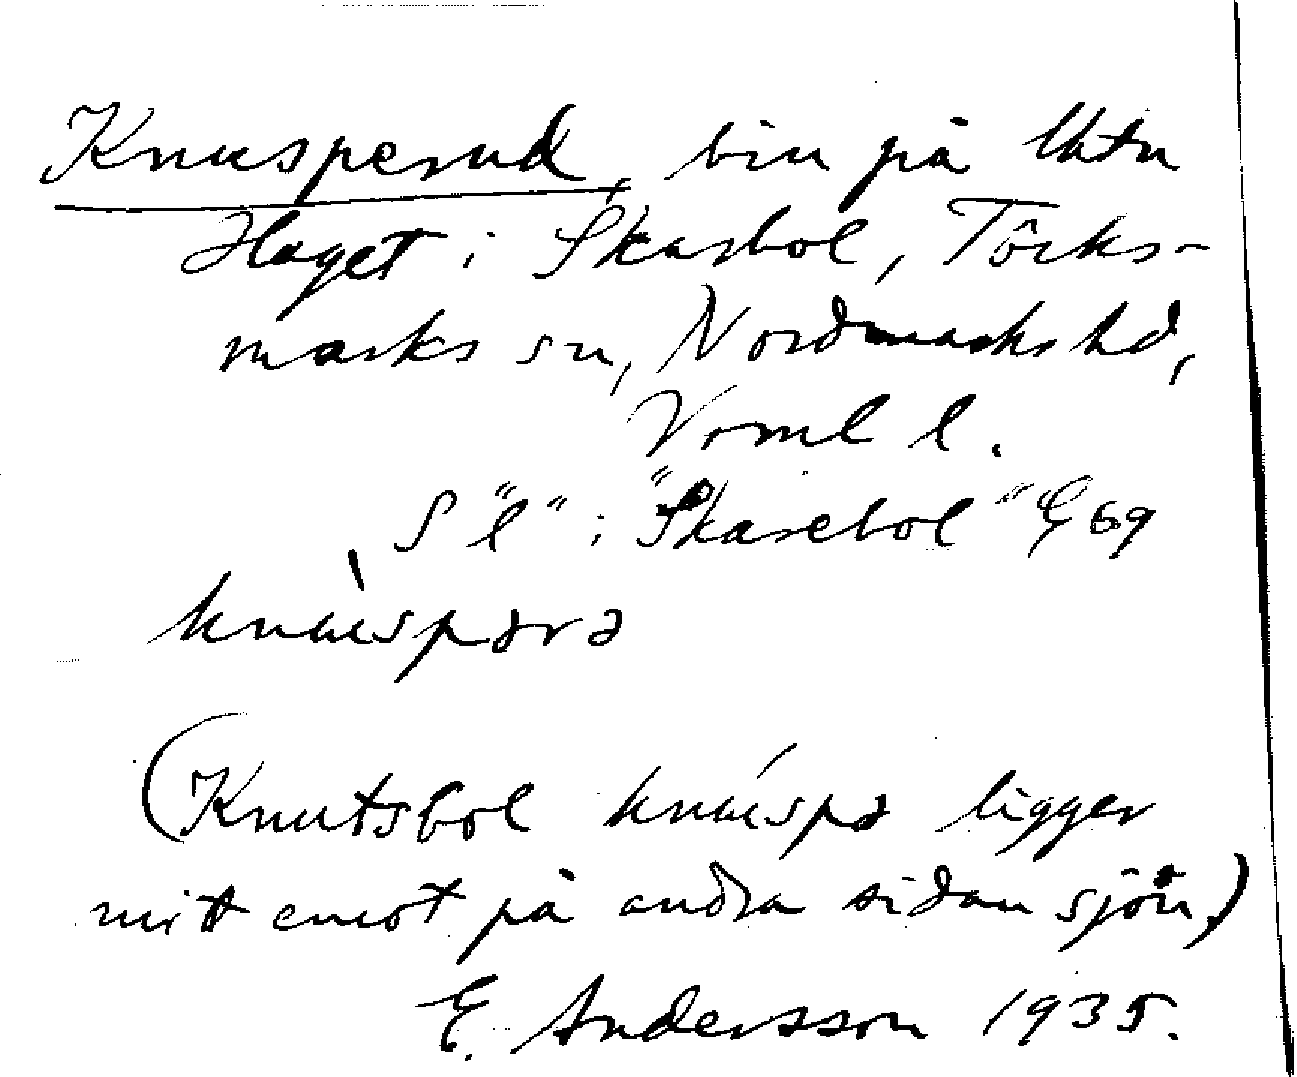 Knusperud, bin på Utm
Haget i Skasbol, Törks-
marks sn, Nordmarks hd,
Vrml l.
S "l" i "Skasebol" E 69
knɯspərə
(Knutsbol knɯ́spə ligger
mitt emot på andra sidan sjön.)
E. Andersson 1935.